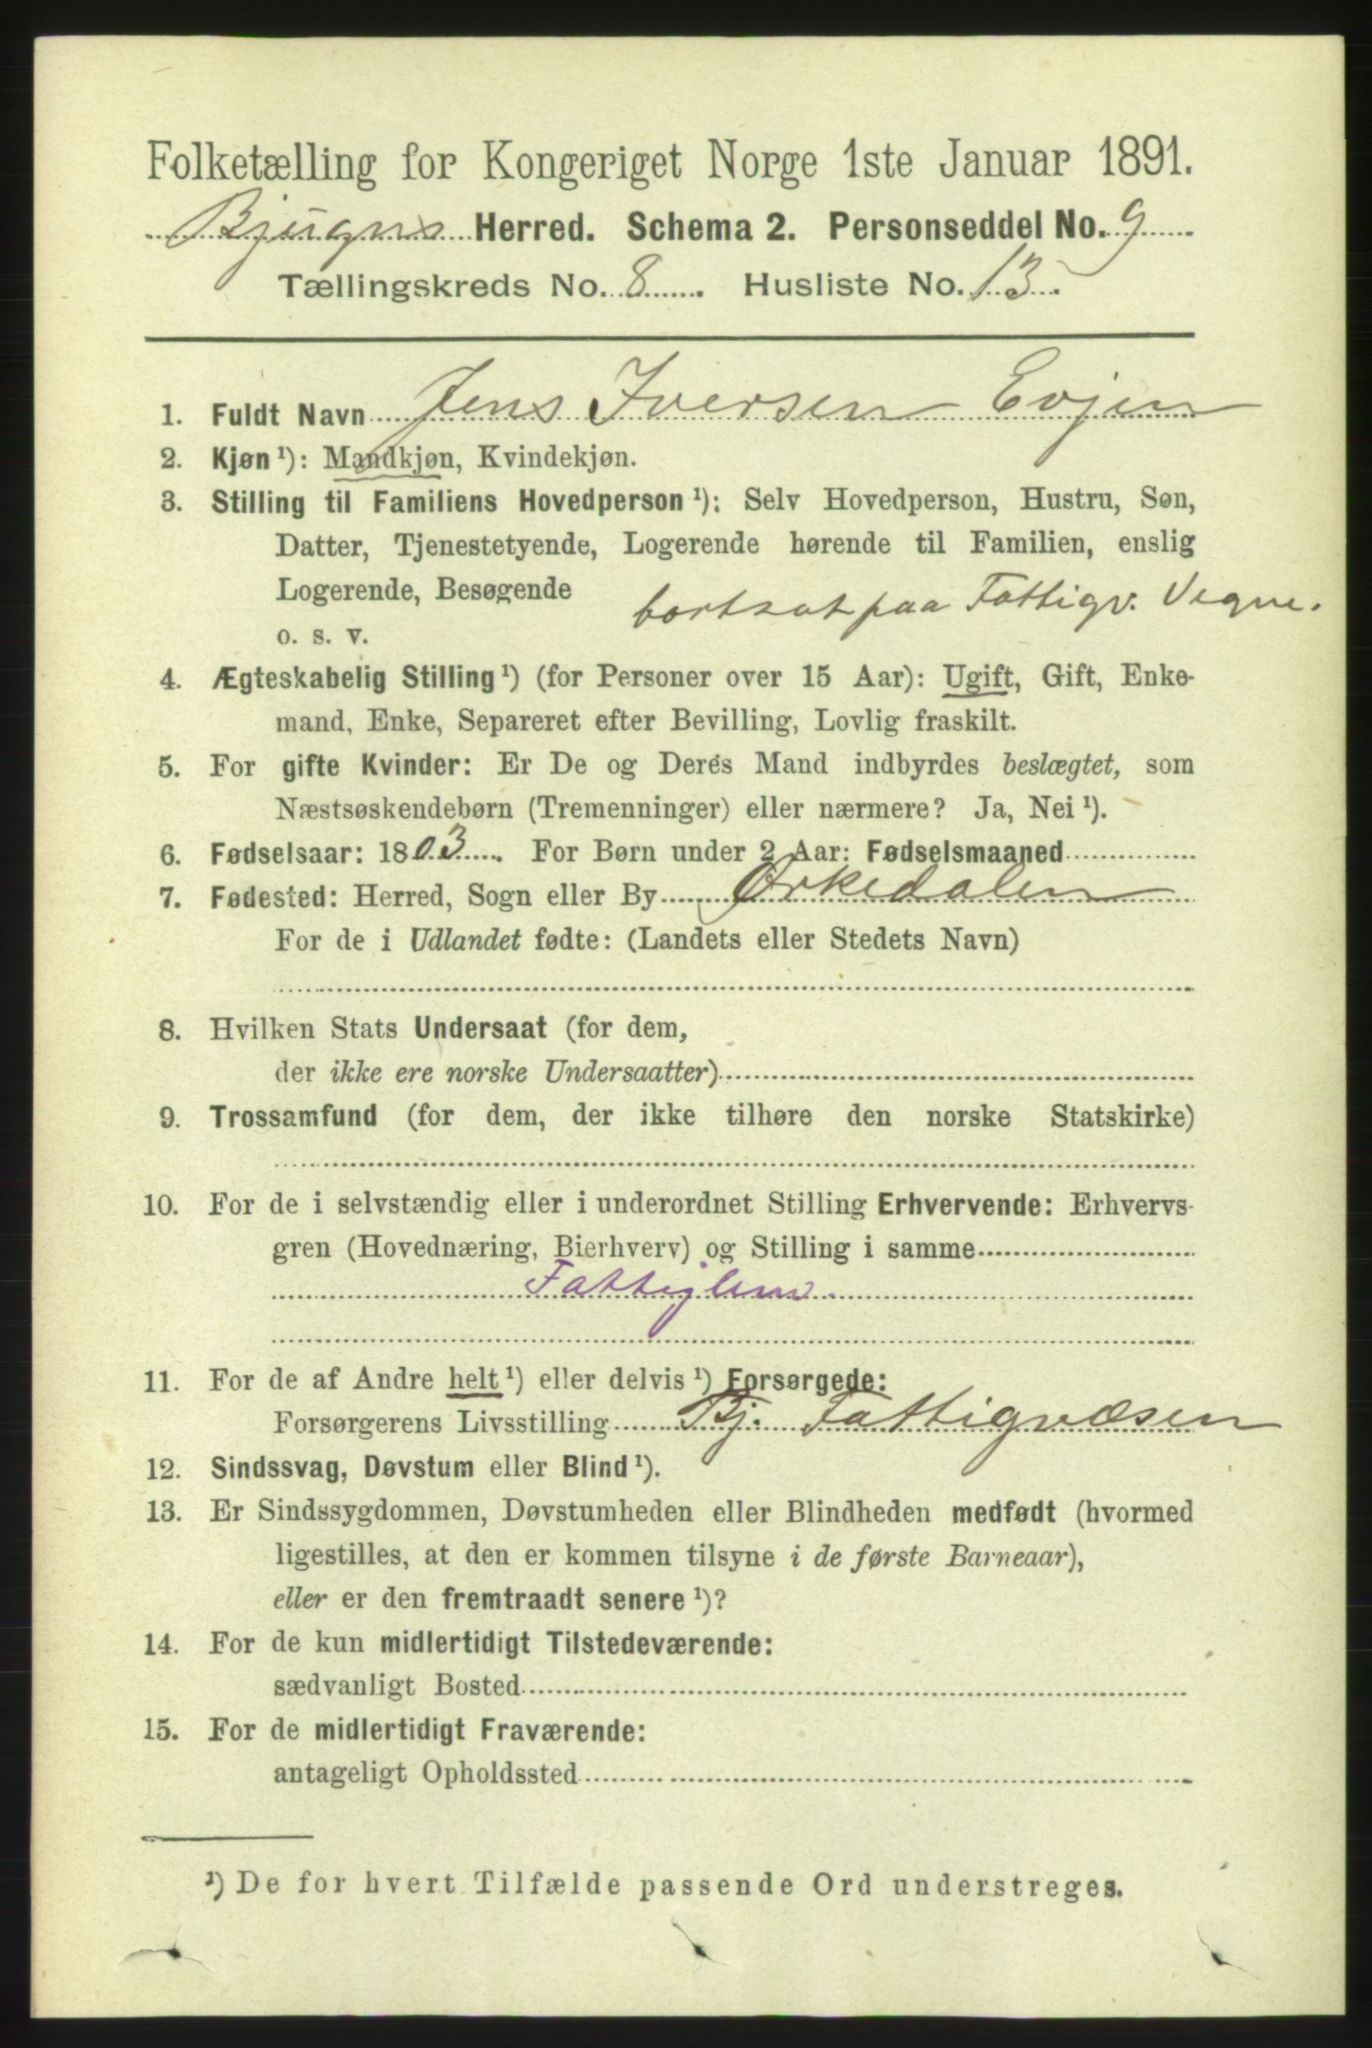 Folketælling for Kongeriget Norge 1ste Januar 1891.
Bjugns Herred. Schema 2. Personseddel No. 9
Tællingskreds No. 8 Husliste No. 13.
1. Fuldt Navn Jens Iversen Evjen
2. Kjøn ¹): Mandkjøn, Kvindekjøn.
3. Stilling til Familiens Hovedperson ¹): Selv Hovedperson, Hustru, Søn,
Datter, Tjenestetyende, Logerende hørende til Familien, enslig
Logerende, Besøgende
o. s. v. bortsat paa Fattigv. Vegne.
4. Ægteskabelig Stilling ¹) (for Personer over 15 Aar): Ugift, Gift, Enke-
mand, Enke, Separeret efter Bevilling, Lovlig fraskilt.
5. For gifte Kvinder: Er De og Deres Mand indbyrdes beslægtet, som
Næstsøskendebørn (Tremenninger) eller nærmere? Ja, Nei ¹).
6. Fødselsaar: 1803. For Børn under 2 Aar: Fødselsmaaned
7. Fødested: Herred, Sogn eller By Orkedalen
For de i Udlandet fødte: (Landets eller Stedets Navn)
8. Hvilken Stats Undersaat (for dem,
der ikke ere norske Undersaatter)
9. Trossamfund (for dem, der ikke tilhøre den norske Statskirke)
10. For de i selvstændig eller i underordnet Stilling Erhvervende: Erhvervs-
gren (Hovednæring, Bierhverv) og Stilling i samme
Fattiglem.
11. For de af Andre helt ¹) eller delvis ¹) Forsørgede:
Forsørgerens Livsstilling Bj. Fattigvæsen
12. Sindssvag, Døvstum eller Blind ¹).
13. Er Sindssygdommen, Døvstumheden eller Blindheden medfødt (hvormed
ligestilles, at den er kommen tilsyne i de første Barneaar),
eller er den fremtraadt senere ¹)?
14. For de kun midlertidigt Tilstedeværende:
sædvanligt Bosted
15. For de midlertidigt Fraværende:
antageligt Opholdssted
¹) De for hvert Tilfælde passende Ord understreges.